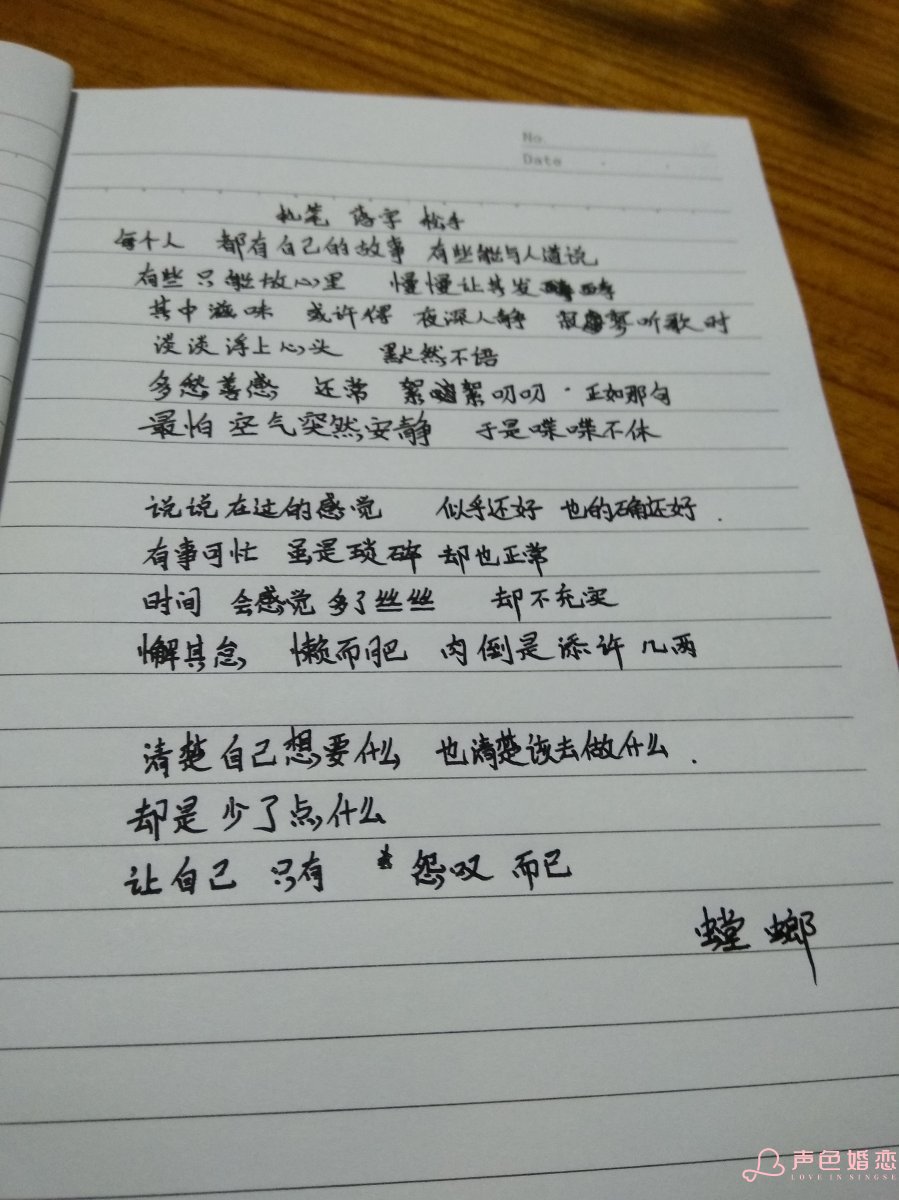 No
Date
执笔 落字 松手
每个人 都有自己的故事 有些能与人道说
有些只能放心里 慢慢让其发酵
其中滋味 或许得 夜深人静 寂寞听歌时
淡淡浮上心头 默然不语
多愁善感 还常 絮絮叨叨 · 正如那句
最怕 空气突然安静 于是喋喋不休
说说在过的感觉 似乎还好 也的确还好.
有事可忙 虽是琐碎 却也正常
时间 会感觉 多了丝丝 却不充实
懈其怠 懒而肥 肉倒是添许几两
清楚自己想要什么 也清楚该去做什么.
却是少了点什么
让自己 只有 怨叹 而已
螳螂
声色婚恋
LOVE IN SINGSE